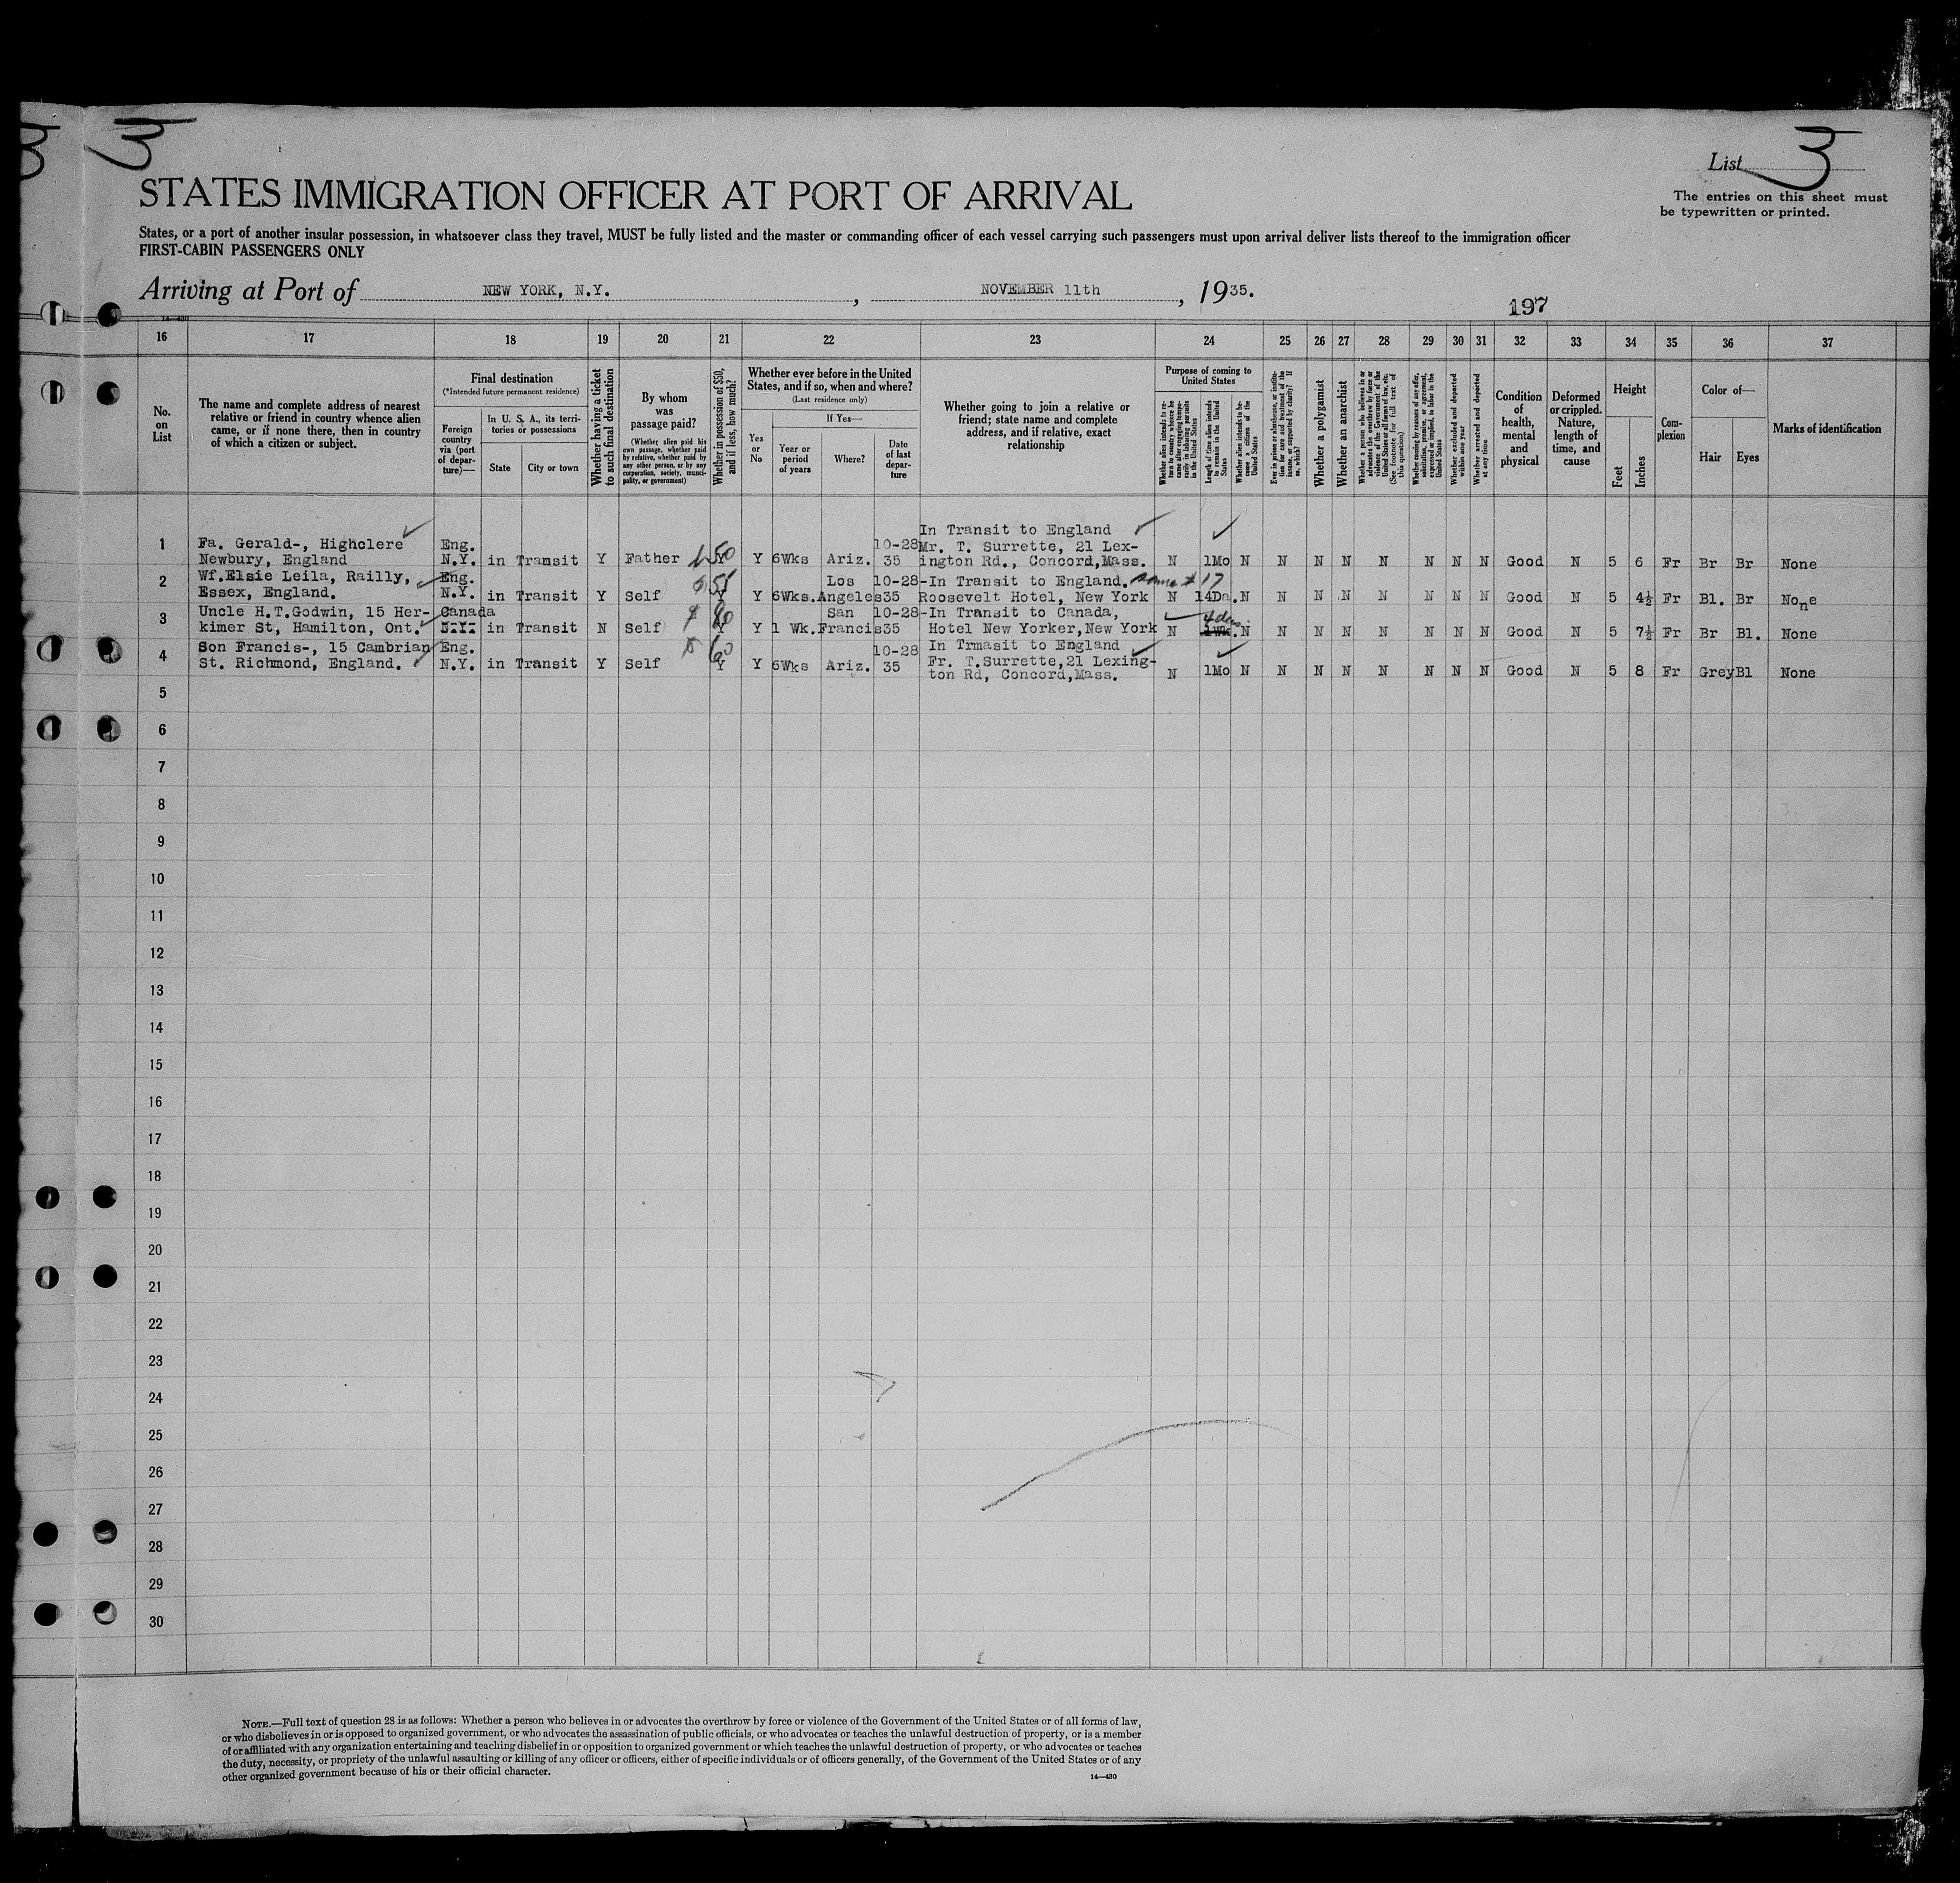 3
3
3
List 3
The entries on this sheet must
be typewritten or printed.
STATES IMMIGRATION OFFICER AT PORT OF ARRIVAL
States, or a port of another insular possession, in whatsoever class they travel, MUST be fully listed and the master or commanding officer of each vessel carrying such passengers must upon arrival deliver lists thereof to the immigration officer
FIRST-CABIN PASSENGERS ONLY
Arriving at Port of NEW YORK, N.Y. , NOVEMBER 11th , 1935.
197
14—430
16 17 18 19 20 21 22 23 24 25 26 27 28 29 30 31 32 33 34 35 36 37
No.
on
List
The name and complete address of nearest
relative or friend in country whence alien
came, or if none there, then in country
of which a citizen or subject.
Final destination
(*Intended future permanent residence)
Foreign
country
via (port
of depar-
ture)—
In U. S. A., its terri-
tories or possessions
State
City or town
Whether having a ticket
to such final destination
By whom
was
passage paid?
(Whether alien paid his
own passage, whether paid
by relative, whether paid by
any other person, or by any
corporation, society, munici-
pality, or government)
Whether in possession of $50,
and if less, how much?
Whether ever before in the United
States, and if so, when and where?
(Last residence only)
Yes
or
No
If Yes—
Year or
period
of years
Where?
Date
of last
depar-
ture
Whether going to join a relative or
friend; state name and complete
address, and if relative, exact
relationship
Purpose of coming to
United States
Whether alien intends to re-
turn to country whence he
came after engaging tempo-
rarily in laboring pursuits
in the United States
Length of time alien intends
to remain in the United
States
Whether alien intends to be-
come a citizen of the
United States
Ever in prison or almshouse, or institu-
tion for care and treatment of the
insane, or supported by charity? If
so, which?
Whether a polygamist
Whether an anarchist
Whether a person who believes in or
advocates the overthrow by force or
violence of the Government of the
United States or all forms of law, etc.
(See footnote for full text of
this question)
Whether coming by reasons of any offer,
solicitation, promise, or agreement,
expressed or implied, to labor in the
United States
Whether excluded and deported
within one year
Whether arrested and deported
at any time
Condition
of
health,
mental
and
physical
Deformed
or crippled.
Nature,
length of
time, and
cause
Height
Feet
Inches
Com-
plexion
Color of—
Hair
Eyes
Marks of identification
In Transit to England
1 Fa. Gerald-, Highclere Eng. 50 10-28 Mr. T. Surrette, 21 Lex-
Newbury, England N.Y. in Transit Y Father Y Y 6Wks Ariz. 35 ington Rd., Concord,Mass. N 1Mo N N N N N N N N Good N 5 6 Fr Br Br None
2 Wf.Elsie Leila, Railly, Eng. Los 10-28-In Transit to England. 17
Essex, England. N.Y. in Transit Y Self Y Y 6Wks.Angeles35 Roosevelt Hotel, New York N 14Da.N N N N N N N N Good N 5 4½ Fr Bl. Br None
3 Uncle H.T.Godwin, 15 Her- Canada 80 San 10-28-In Transit to Canada, 4 ds
kimer St, Hamilton, Ont. in Transit N Self Y Y 1 Wk.Francis35 Hotel New Yorker,New York N 1Wk.N N N N N N N N Good N 5 7½ Fr Br Bl. None
4 Son Francis-, 15 Cambrian Eng. 60 10-28 In Trmasit to England
St. Richmond, England. N.Y. in Transit Y Self Y Y 6Wks Ariz. 35 Fr. T.Surrette,21 Lexing-
ton Rd, Concord,Mass. N 1Mo N N N N N N N N Good N 5 8 Fr Grey Bl None
5
6
7
8
9
10
11
12
13
14
15
16
17
18
19
20
21
22
23
24
25
26
27
28
29
30
NOTE.—Full text of question 28 is as follows: Whether a person who believes in or advocates the overthrow by force or violence of the Government of the United States or of all forms of law,
or who disbelieves in or is opposed to organized government, or who advocates the assassination of public officials, or who advocates or teaches the unlawful destruction of property, or is a member
of or affiliated with any organization entertaining and teaching disbelief in or opposition to organized government or which teaches the unlawful destruction of property, or who advocates or teaches
the duty, necessity, or propriety of the unlawful assaulting or killing of any officer or officers, either of specific individuals or of officers generally, of the Government of the United States or of any
other organized government because of his or their official character.
14—430